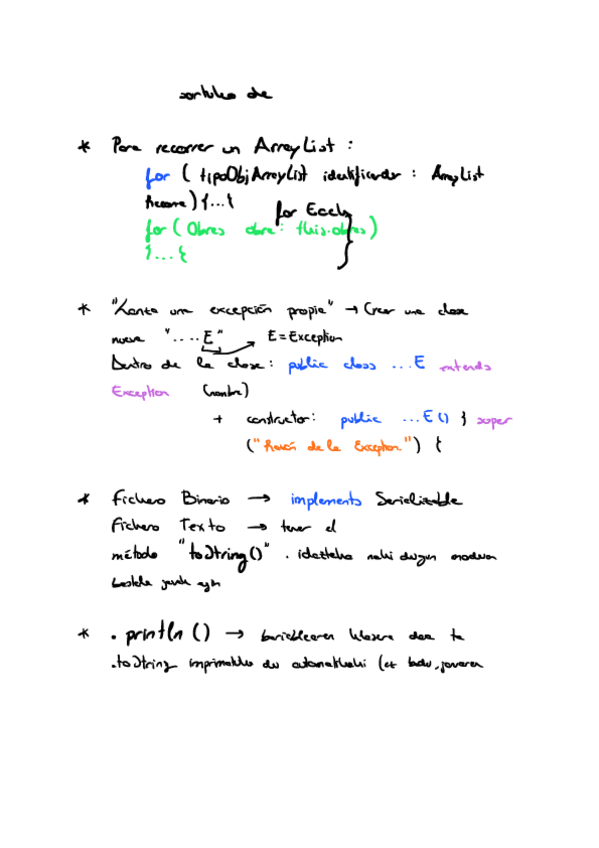 sortuko da
* Para recorrer un ArrayList :
for ( tipoObjArrayList identificador : ArrayList
) {...{
for Each
for ( Obras obra : this.obras)
}...{
* "Lanza una excepción propia" → Crear una clase
nueva "....E" E = Exception
Dentro de la clase: public class ...E extends
Exception (nombre)
+ constructor: public ...E() } super
("Razón de la Exception") {
* Fichero Binario → implements Serializable
Fichero Texto → tener el
método "toString()" . idazteko nahi dugun moduan
bestela
* . println () → barieblearen klasera doa ta
.toString imprimatuko du automatikoki (ez badu,